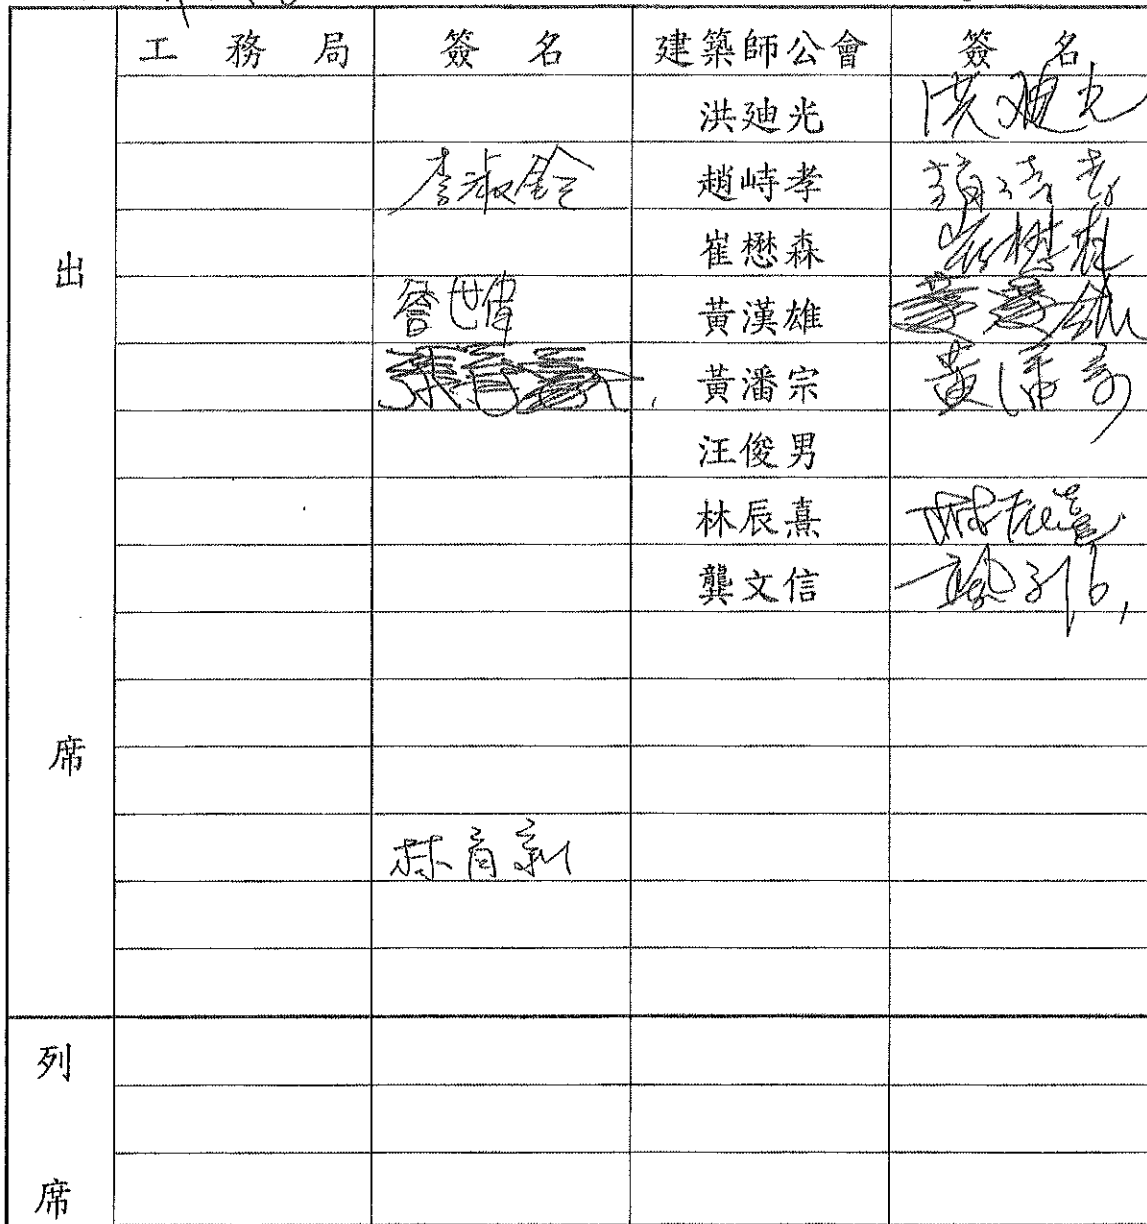 工務局 簽名 建築師公會 簽名
洪廸光 洪廸光
李淑鈴 趙峙孝
崔懋森 崔懋森
出
詹世偉 黃漢雄
黃潘宗 黃潘宗
汪俊男
林辰熹 林辰熹
龔文信
席
林育新
列
席